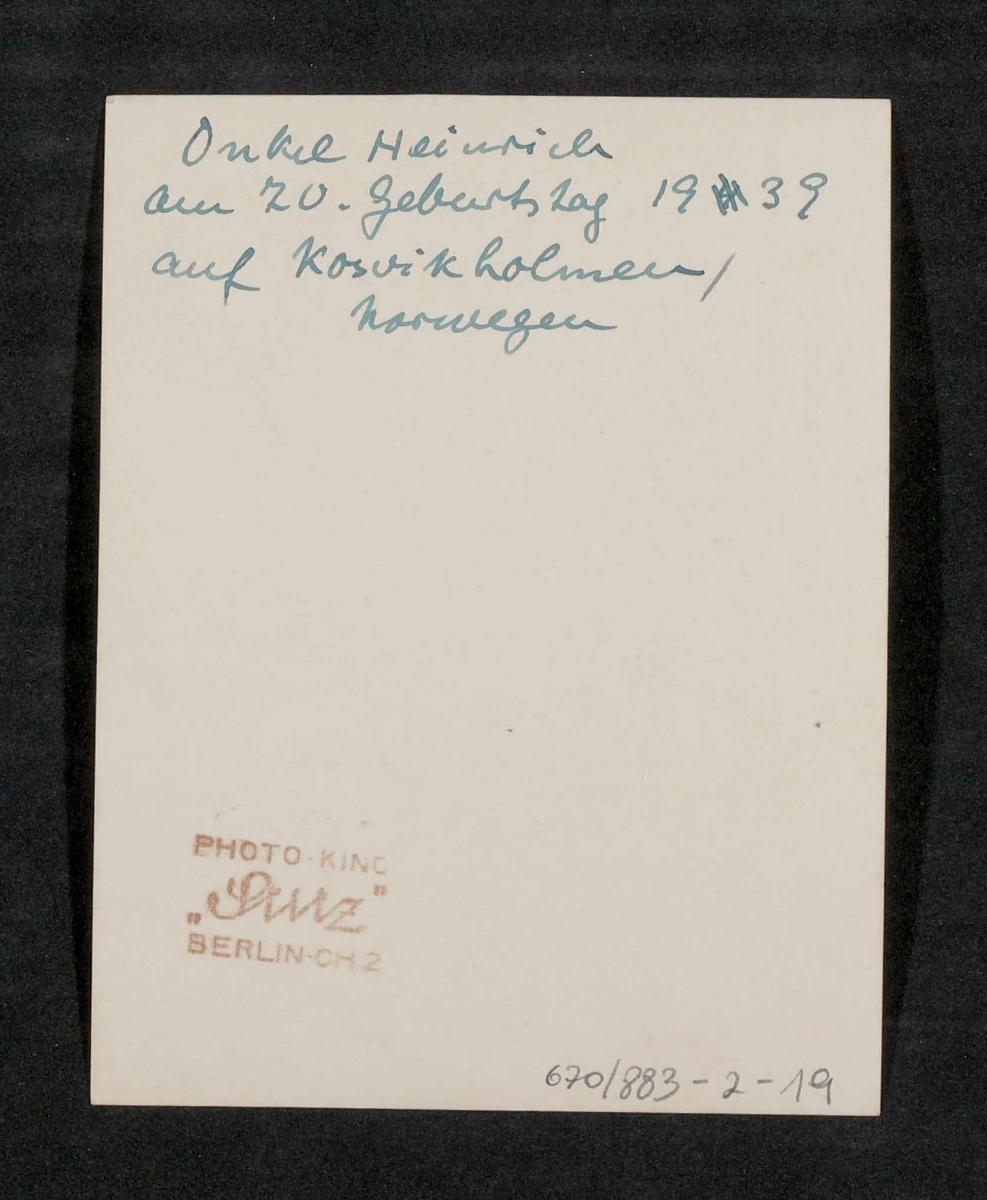 Onkel Heinrich
am 70. Geburtstag 19 39
auf Kosvikholmen/
Norwegen
PHOTO-KINO
BERLIN-CH.2
670/883-2-19